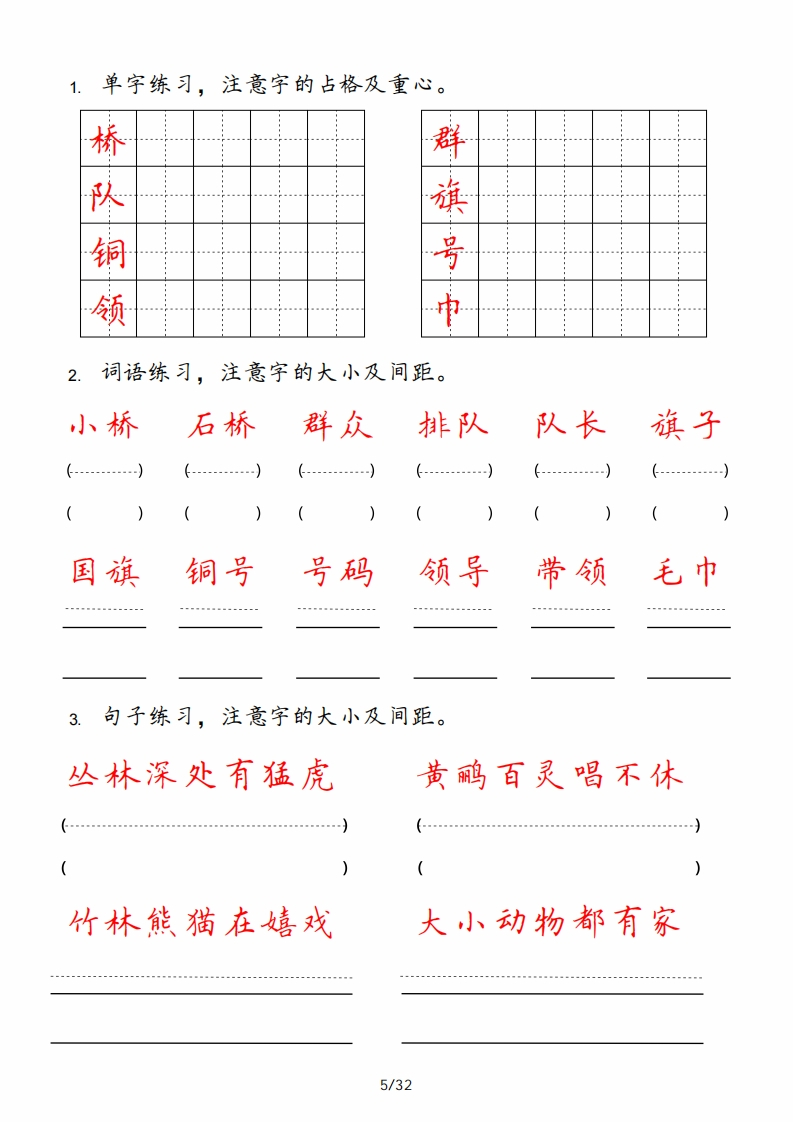 1. 单字练习，注意字的占格及重心。
桥 群
队 旗
铜 号
领 巾
2. 词语练习，注意字的大小及间距。
小桥 石桥 群众 排队 队长 旗子
( ) ( ) ( ) ( ) ( ) ( )
( ) ( ) ( ) ( ) ( ) ( )
国旗 铜号 号码 领导 带领 毛巾
3. 句子练习，注意字的大小及间距。
丛林深处有猛虎 黄鹂百灵唱不休
( ) ( )
( ) ( )
竹林熊猫在嬉戏 大小动物都有家
5/32